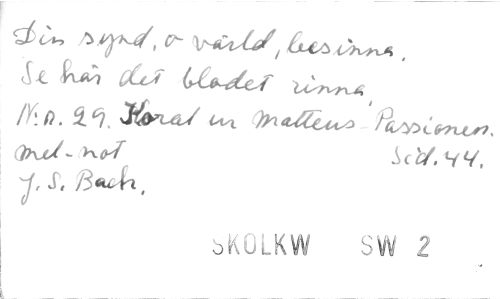 Din synd, o värld, besinna.
Se här det blodet rinna,
N:o. 29. Koral ur Matteus-Passionen.
mel-not Sid. 44.
J. S. Bach.
SKOLKW SW 2